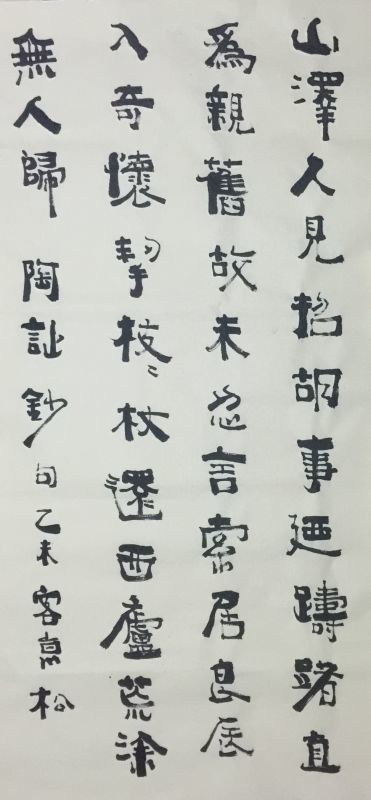 山澤久見招胡事廼躊躇直
爲親舊故未忍言索居良辰
入奇懷挈枝〻杖還西廬荒涂
無人歸 陶詩鈔句乙未客京松